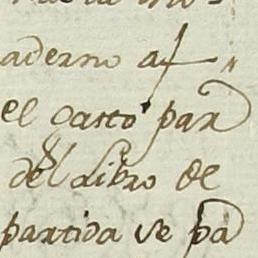 aderno af
el gasto para
del Libro de
partida se pa